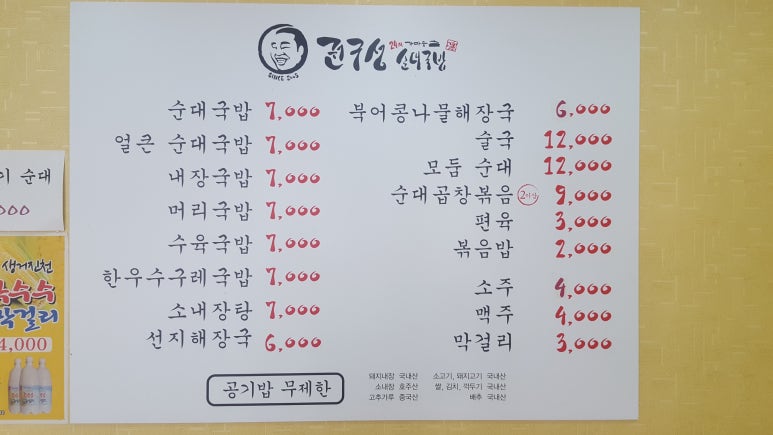 권구성 24시 가마솥 순대국밥
SINCE 2005
순대국밥 7,000
얼큰 순대국밥 7,000
내장국밥 7,000
머리국밥 7,000
수육국밥 7,000
한우수구레국밥 7,000
소내장탕 7,000
선지해장국 6,000
북어콩나물해장국 6,000
술국 12,000
모둠 순대 12,000
순대곱창볶음 2인상 9,000
편육 3,000
볶음밥 2,000
소주 4,000
맥주 4,000
막걸리 3,000
공기밥 무제한
돼지내장 국내산
소내장 호주산
고추가루 중국산
소고기, 돼지고기 국내산
쌀, 김치, 깍두기 국내산
배추 국내산
이 순대
000
생거진천
옥수수
막걸리
4,000